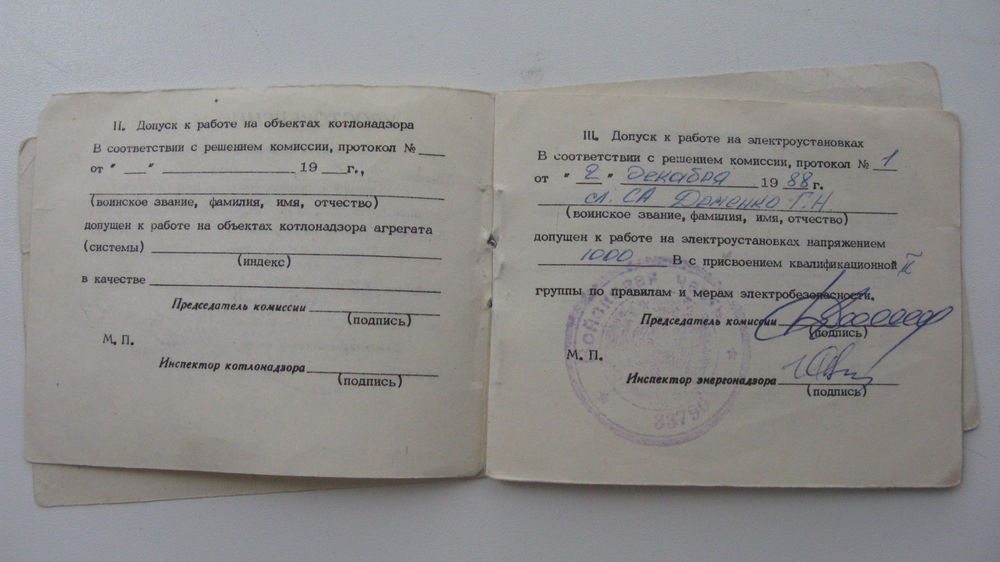 II. Допуск к работе на объектах котлонадзора
В соответствии с решением комиссии, протокол № ___
от " ___ " ___ 19 ___ г.,
(воинское звание, фамилия, имя, отчество)
допущен к работе на объектах котлонадзора агрегата
(системы) ___
(индекс)
в качестве ___
Председатель комиссии ___
(подпись)
М. П.
Инспектор котлонадзора ___
(подпись)
III. Допуск к работе на электроустановках
В соответствии с решением комиссии, протокол № 1
от " 2 " декабря 19 88 г.
сл. СА Доменко Г.Н
(воинское звание, фамилия, имя, отчество)
допущен к работе на электроустановках напряжением
1000 В с присвоением квалификационной
группы по правилам и мерам электробезопасности.
Председатель комиссии
(подпись)
М. П.
Инспектор энергонадзора
(подпись)
ВОЙСКОВАЯ ЧАСТЬ
83790